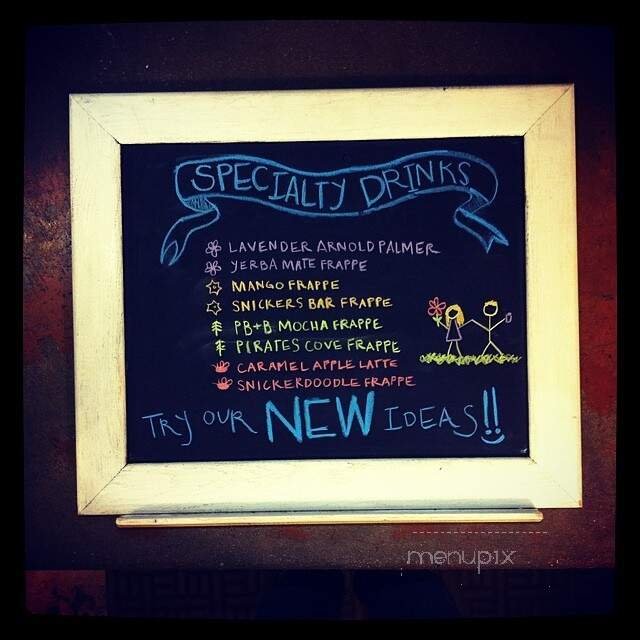 SPECIALTY DRINKS
LAVENDER ARNOLD PALMER
YERBA MATE FRAPPE
MANGO FRAPPE
SNICKERS BAR FRAPPE
PB+B MOCHA FRAPPE
PIRATES COVE FRAPPE
CARAMEL APPLE LATTE
SNICKERDOODLE FRAPPE
TRY OUR NEW IDEAS!!
menupix